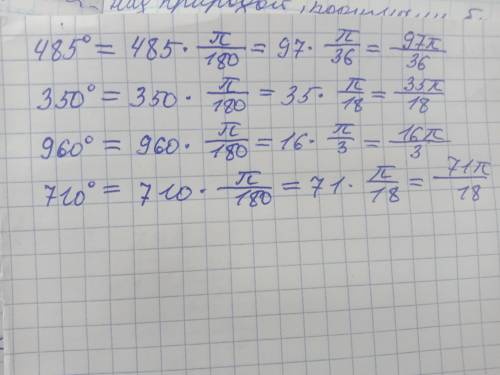 нах природой,
485° = 485 · π/180 = 97 · π/36 = 97π/36
350° = 350 · π/180 = 35 · π/18 = 35π/18
960° = 960 · π/180 = 16 · π/3 = 16π/3
710° = 710 · π/180 = 71 · π/18 = 71π/18